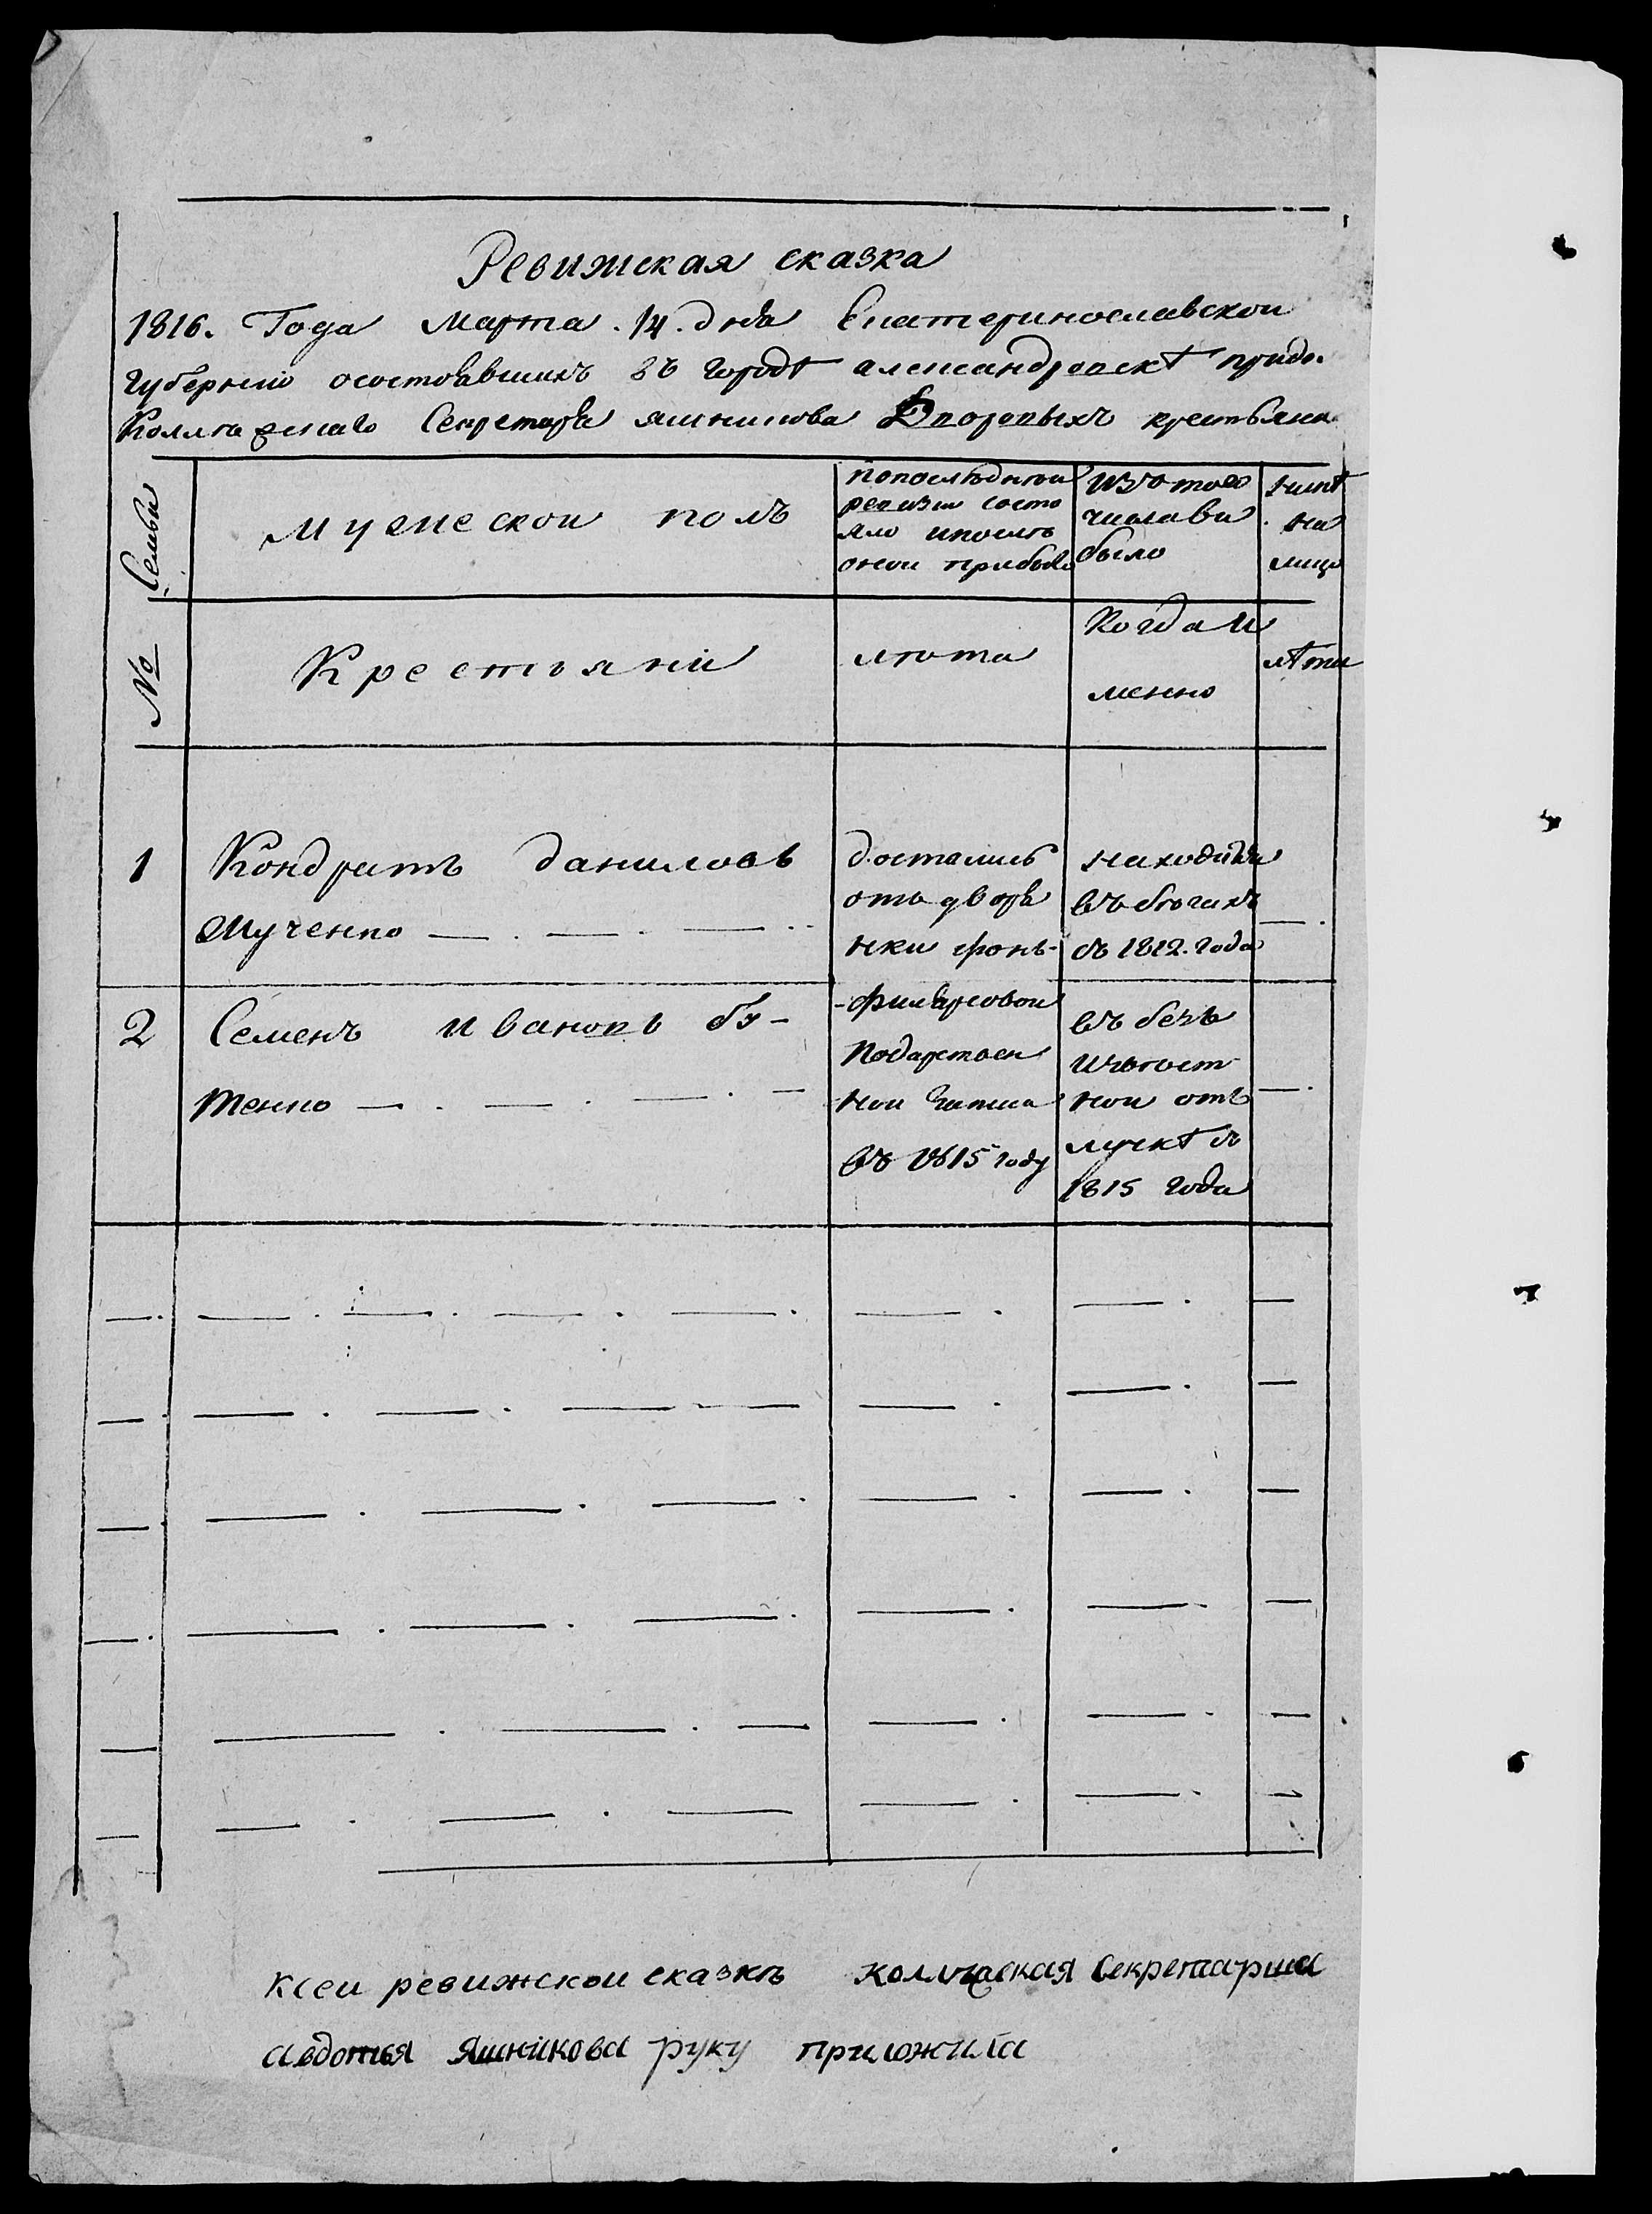 Ревижская сказка
1816. Года Марта. 14. дня Екатеринославской
Губернию осостоявшихъ въ городѣ александровскѣ придо.
Секретаря яшникова Дворовыхъ крестьяна
№ Семьи
Мужеской полъ
попослѣднеи
ревизии состо
яло ипослѣ
онои прибыло
изъ того
числа вы
было
нинѣ
на
лицо
Крестьяни
лѣта
Когда и
менно
лѣта
1
Кондратъ даниловъ
Мученко — . — . — . .
достались
отъ дворя
нки фонъ-
находится
въ бѣгахъ
съ 1812. года
— .
2
Семенъ ивановъ бу-
тенко — . — . — . —
Подарствен
нои Записи
въ 1815 году
въ безъ
извѣст
нои отъ
лучкѣ съ
1815 года
— .
ксеи ревижскои сказкѣ Секретарша
авдотья Яшникова руку приложила